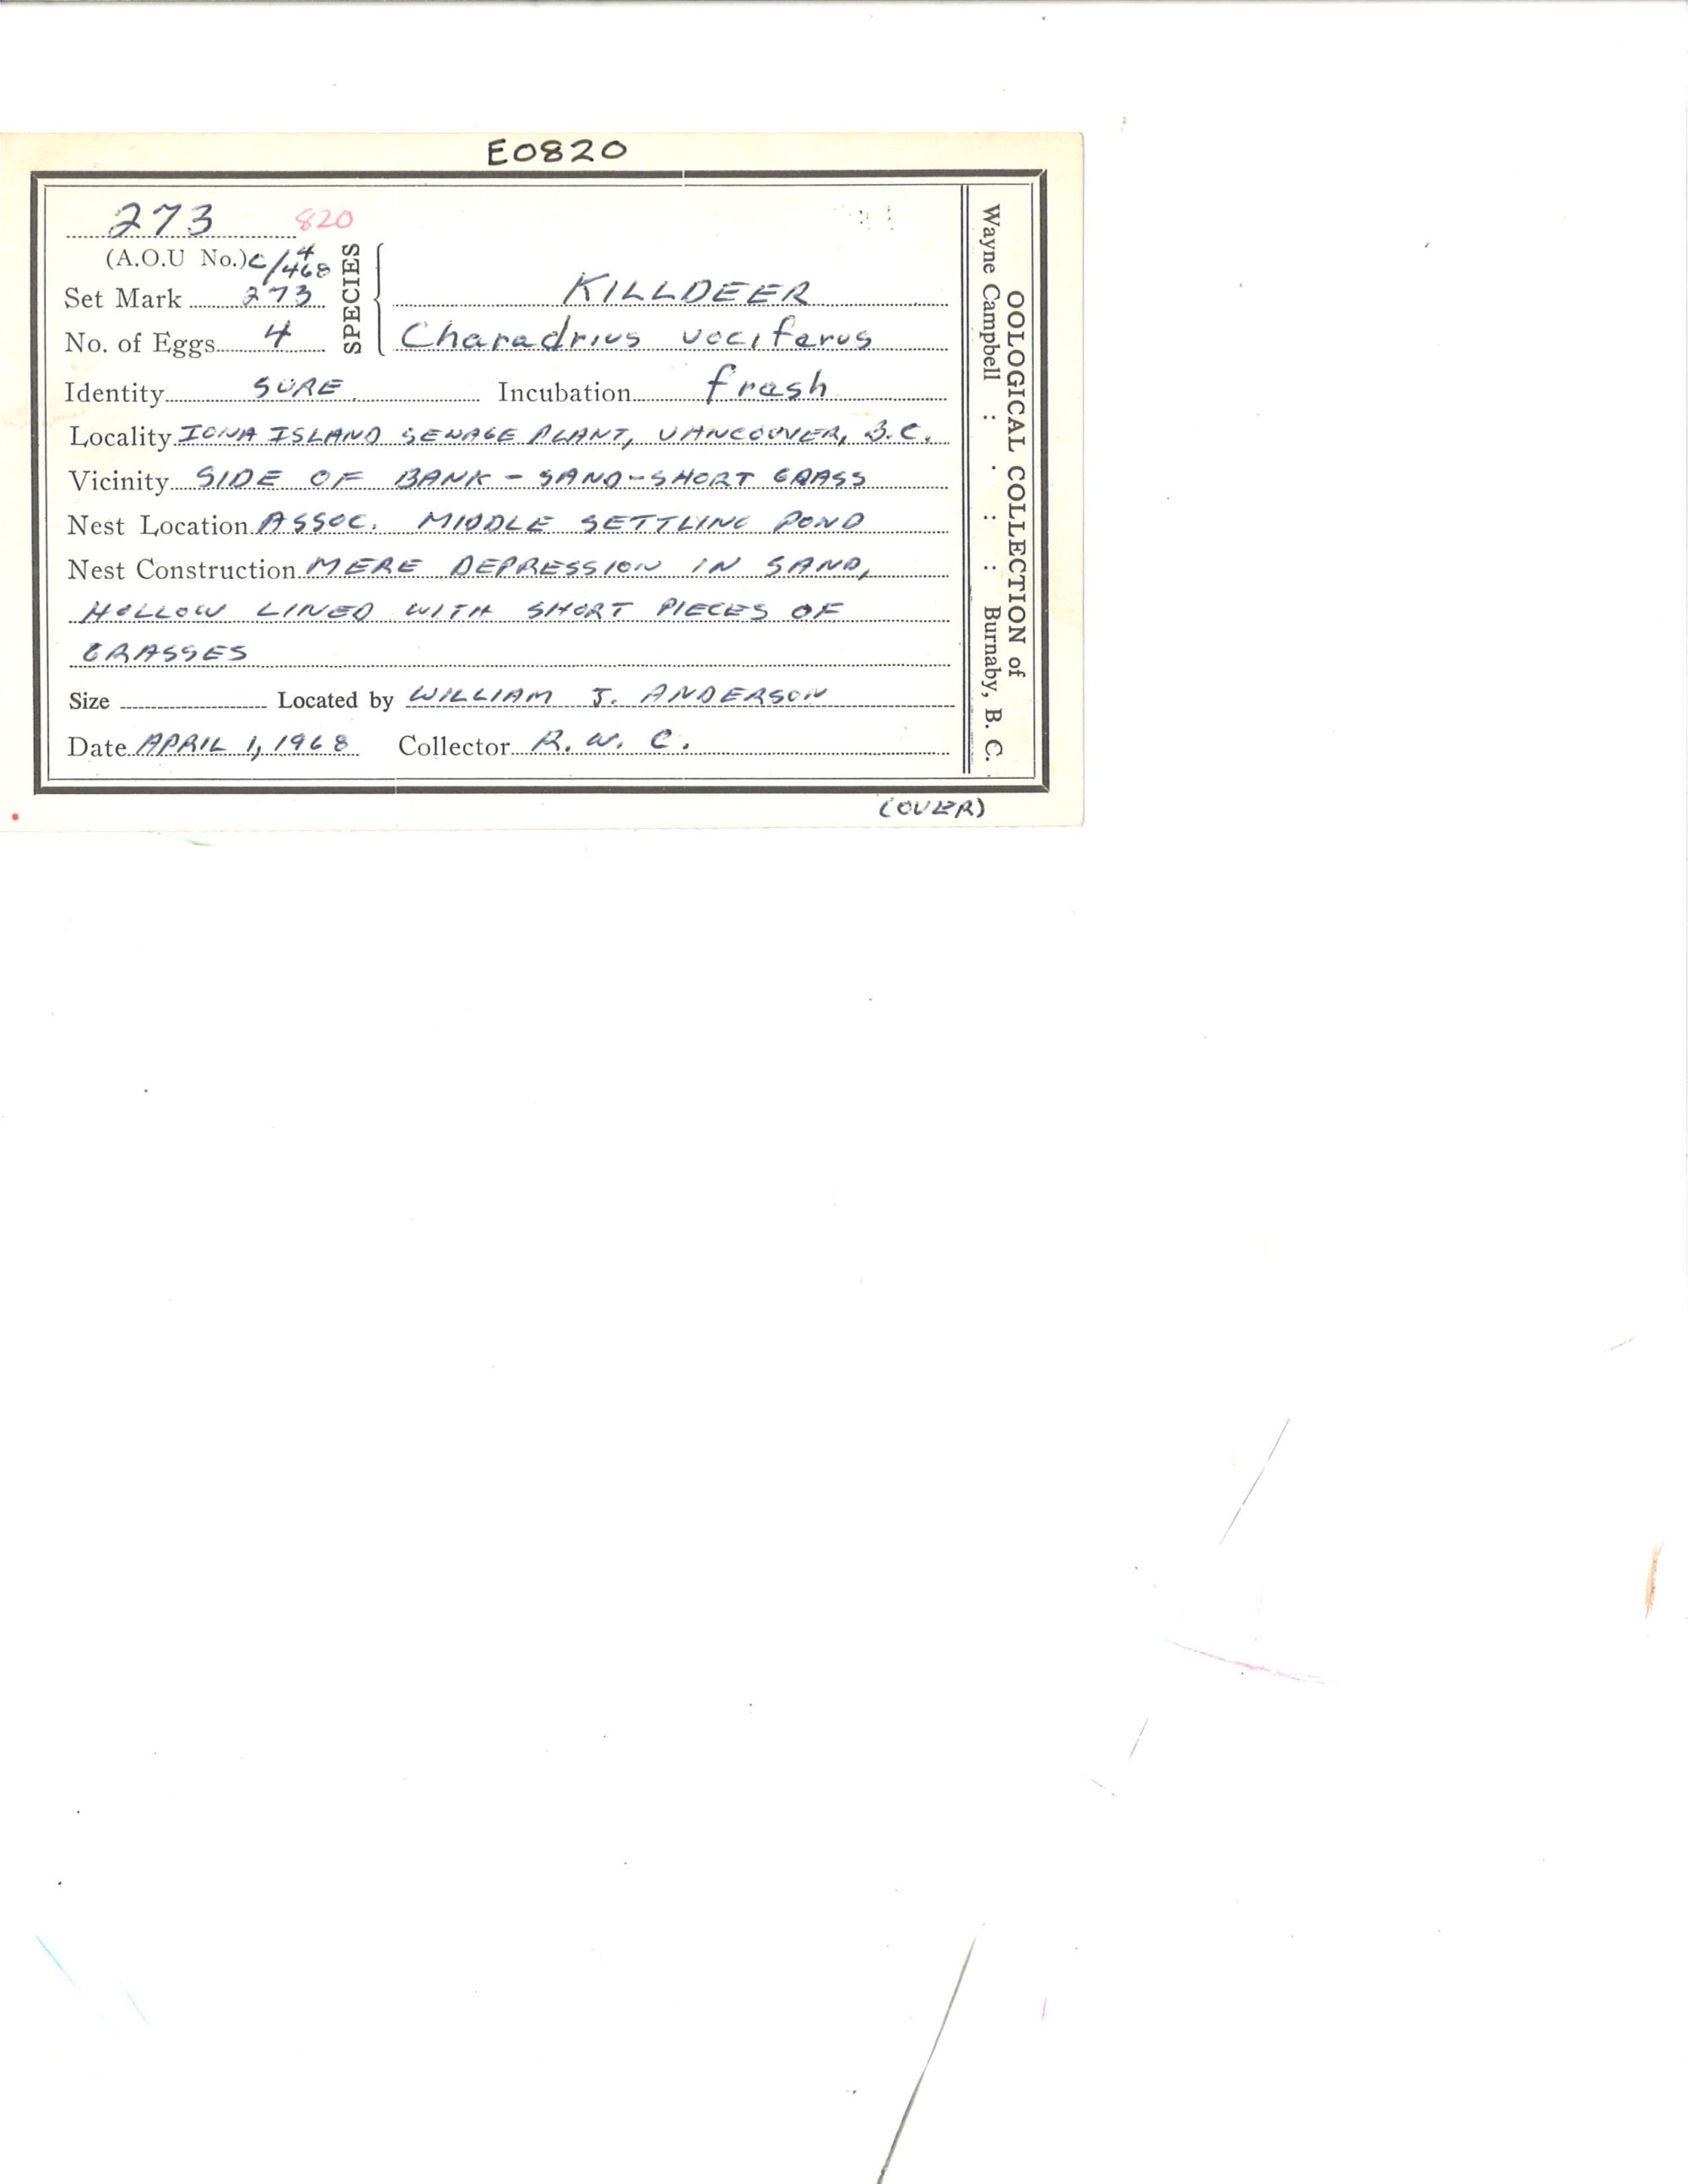 E0820
273 820
(A.O.U No.) C/4/468
Set Mark 273
No. of Eggs 4
SPECIES
KILLDEER
Charadrius vociferus
Identity SURE Incubation fresh
Locality IONA ISLAND SEWAGE PLANT, VANCOUVER, B.C.
Vicinity SIDE OF BANK - SAND - SHORT GRASS
Nest Location ASSOC. MIDDLE SETTLING POND
Nest Construction MERE DEPRESSION IN SAND,
HOLLOW LINED WITH SHORT PIECES OF
GRASSES
Size Located by WILLIAM J. ANDERSON
Date APRIL 1, 1968 Collector R. W. C.
(OVER)
OOLOGICAL COLLECTION of
Wayne Campbell : . : : Burnaby, B. C.